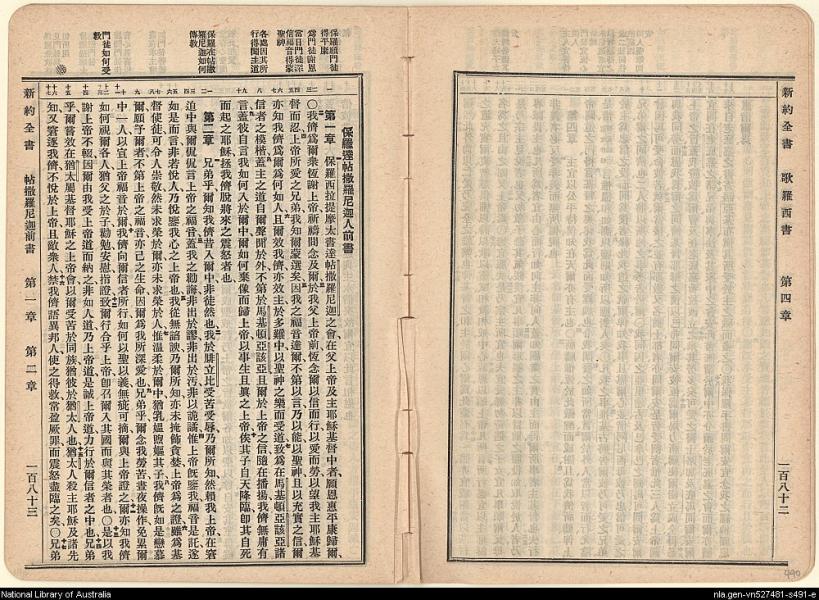 新約全書　歌羅西書　第四章　一百八十二
保羅願門徒得平康
爲門徒謝恩
當日門徒深信福音得蒙聖神
各處因其所行得聞主道
保羅在帖撒羅尼迦如何傳教
門徒如何受教
保羅達帖撒羅尼迦人前書
第一章　保羅西拉提摩太書達帖撒羅尼迦之會在父上帝及主耶穌基督中者願恩惠平康歸爾
○我儕爲爾衆恆謝上帝祈禱間念及爾於我父上帝前恆念爾以信而行以愛而勞以望我主耶穌基
督而忍上帝所愛之兄弟我知爾蒙選矣因我之福音達爾不第以言乃以能以聖神且以充實之信爾
亦知我儕爲爾爲何如人且爾效我儕亦效主於多難中以聖神之樂而受道致爲在馬基頓亞該亞諸
信者之模楷蓋主之道自爾聲聞於外不第於馬基頓亞該亞且爾於上帝之信隨在播揚我儕無庸有
言蓋彼自言我如何入於爾中爾如何棄像而歸上帝以事生且眞之上帝俟其子自天降臨卽其自死
而起之耶穌拯我儕脫將來之震怒者也
第二章　兄弟乎爾知我儕昔入爾中非徒然也我於腓立比受苦受辱乃爾所知然賴我上帝在窘
迫中與爾侃侃言上帝之福音蓋我之勸誨非出於謬非出於汚非以詭譎惟上帝旣鑒我福音是託遂
如是而言非若悅人乃悅鑒我心之上帝也我從無諂諛乃爾所知亦未掩飾貪婪上帝爲之證雖爲基
督使徒可令人崇敬然未求榮於爾亦未求榮於人惟溫柔於爾中猶乳媼煦嫗其子我儕旣如是戀慕
爾願予爾者不第上帝之福音亦己之生命因爾爲我所深愛也兄弟乎爾念我勞苦晝夜操作免累爾
中一人以宣上帝福音於爾我儕向爾信者所行如何以聖以義無疵可摘爾與上帝證之爾亦知我儕
如何視爾各人猶父之於子勸勉安慰指證致爾行合乎上帝卽召爾入其國而與其榮者也○是以我
謝上帝不輟因爾由我受上帝道而納之非如人道乃上帝道是誠上帝道力行於爾信者之中也兄弟
乎爾嘗效在猶太屬基督耶穌之上帝會以爾受苦於同族猶彼於猶太人也猶太人殺主耶穌及諸先
知又窘逐我儕不悅於上帝且敵衆人禁我儕語異邦人使之得救常盈厥罪而震怒盡臨之矣○兄弟
新約全書　帖撒羅尼迦前書　第一章　第二章　一百八十三
490
National Library of Australia
nla.gen-vn527481-s491-e